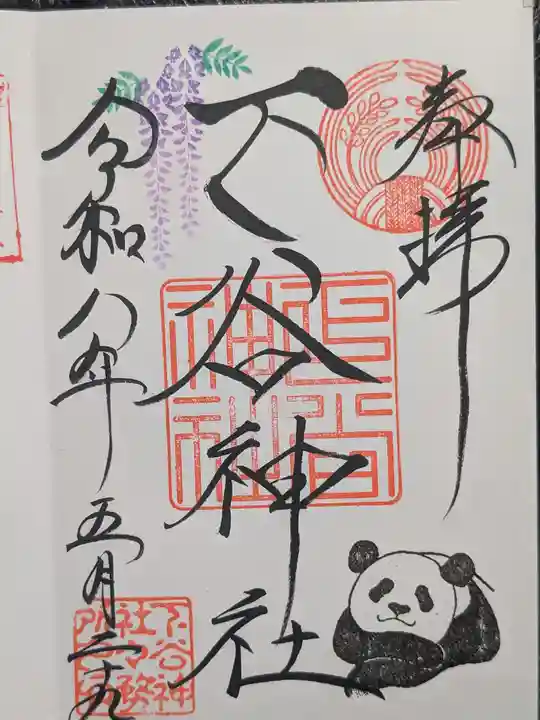 奉拝
下谷神社
令和八年五月二十九
下谷神
社社務